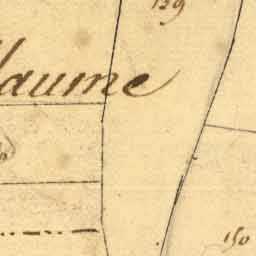 129
laume
150